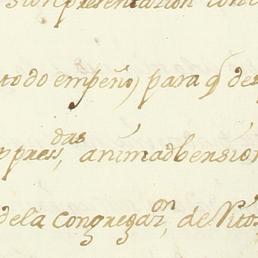 presentacion con
todo empeño, para q̃ des
press,das animadbersion
de la Congregaz.on, de Vitor